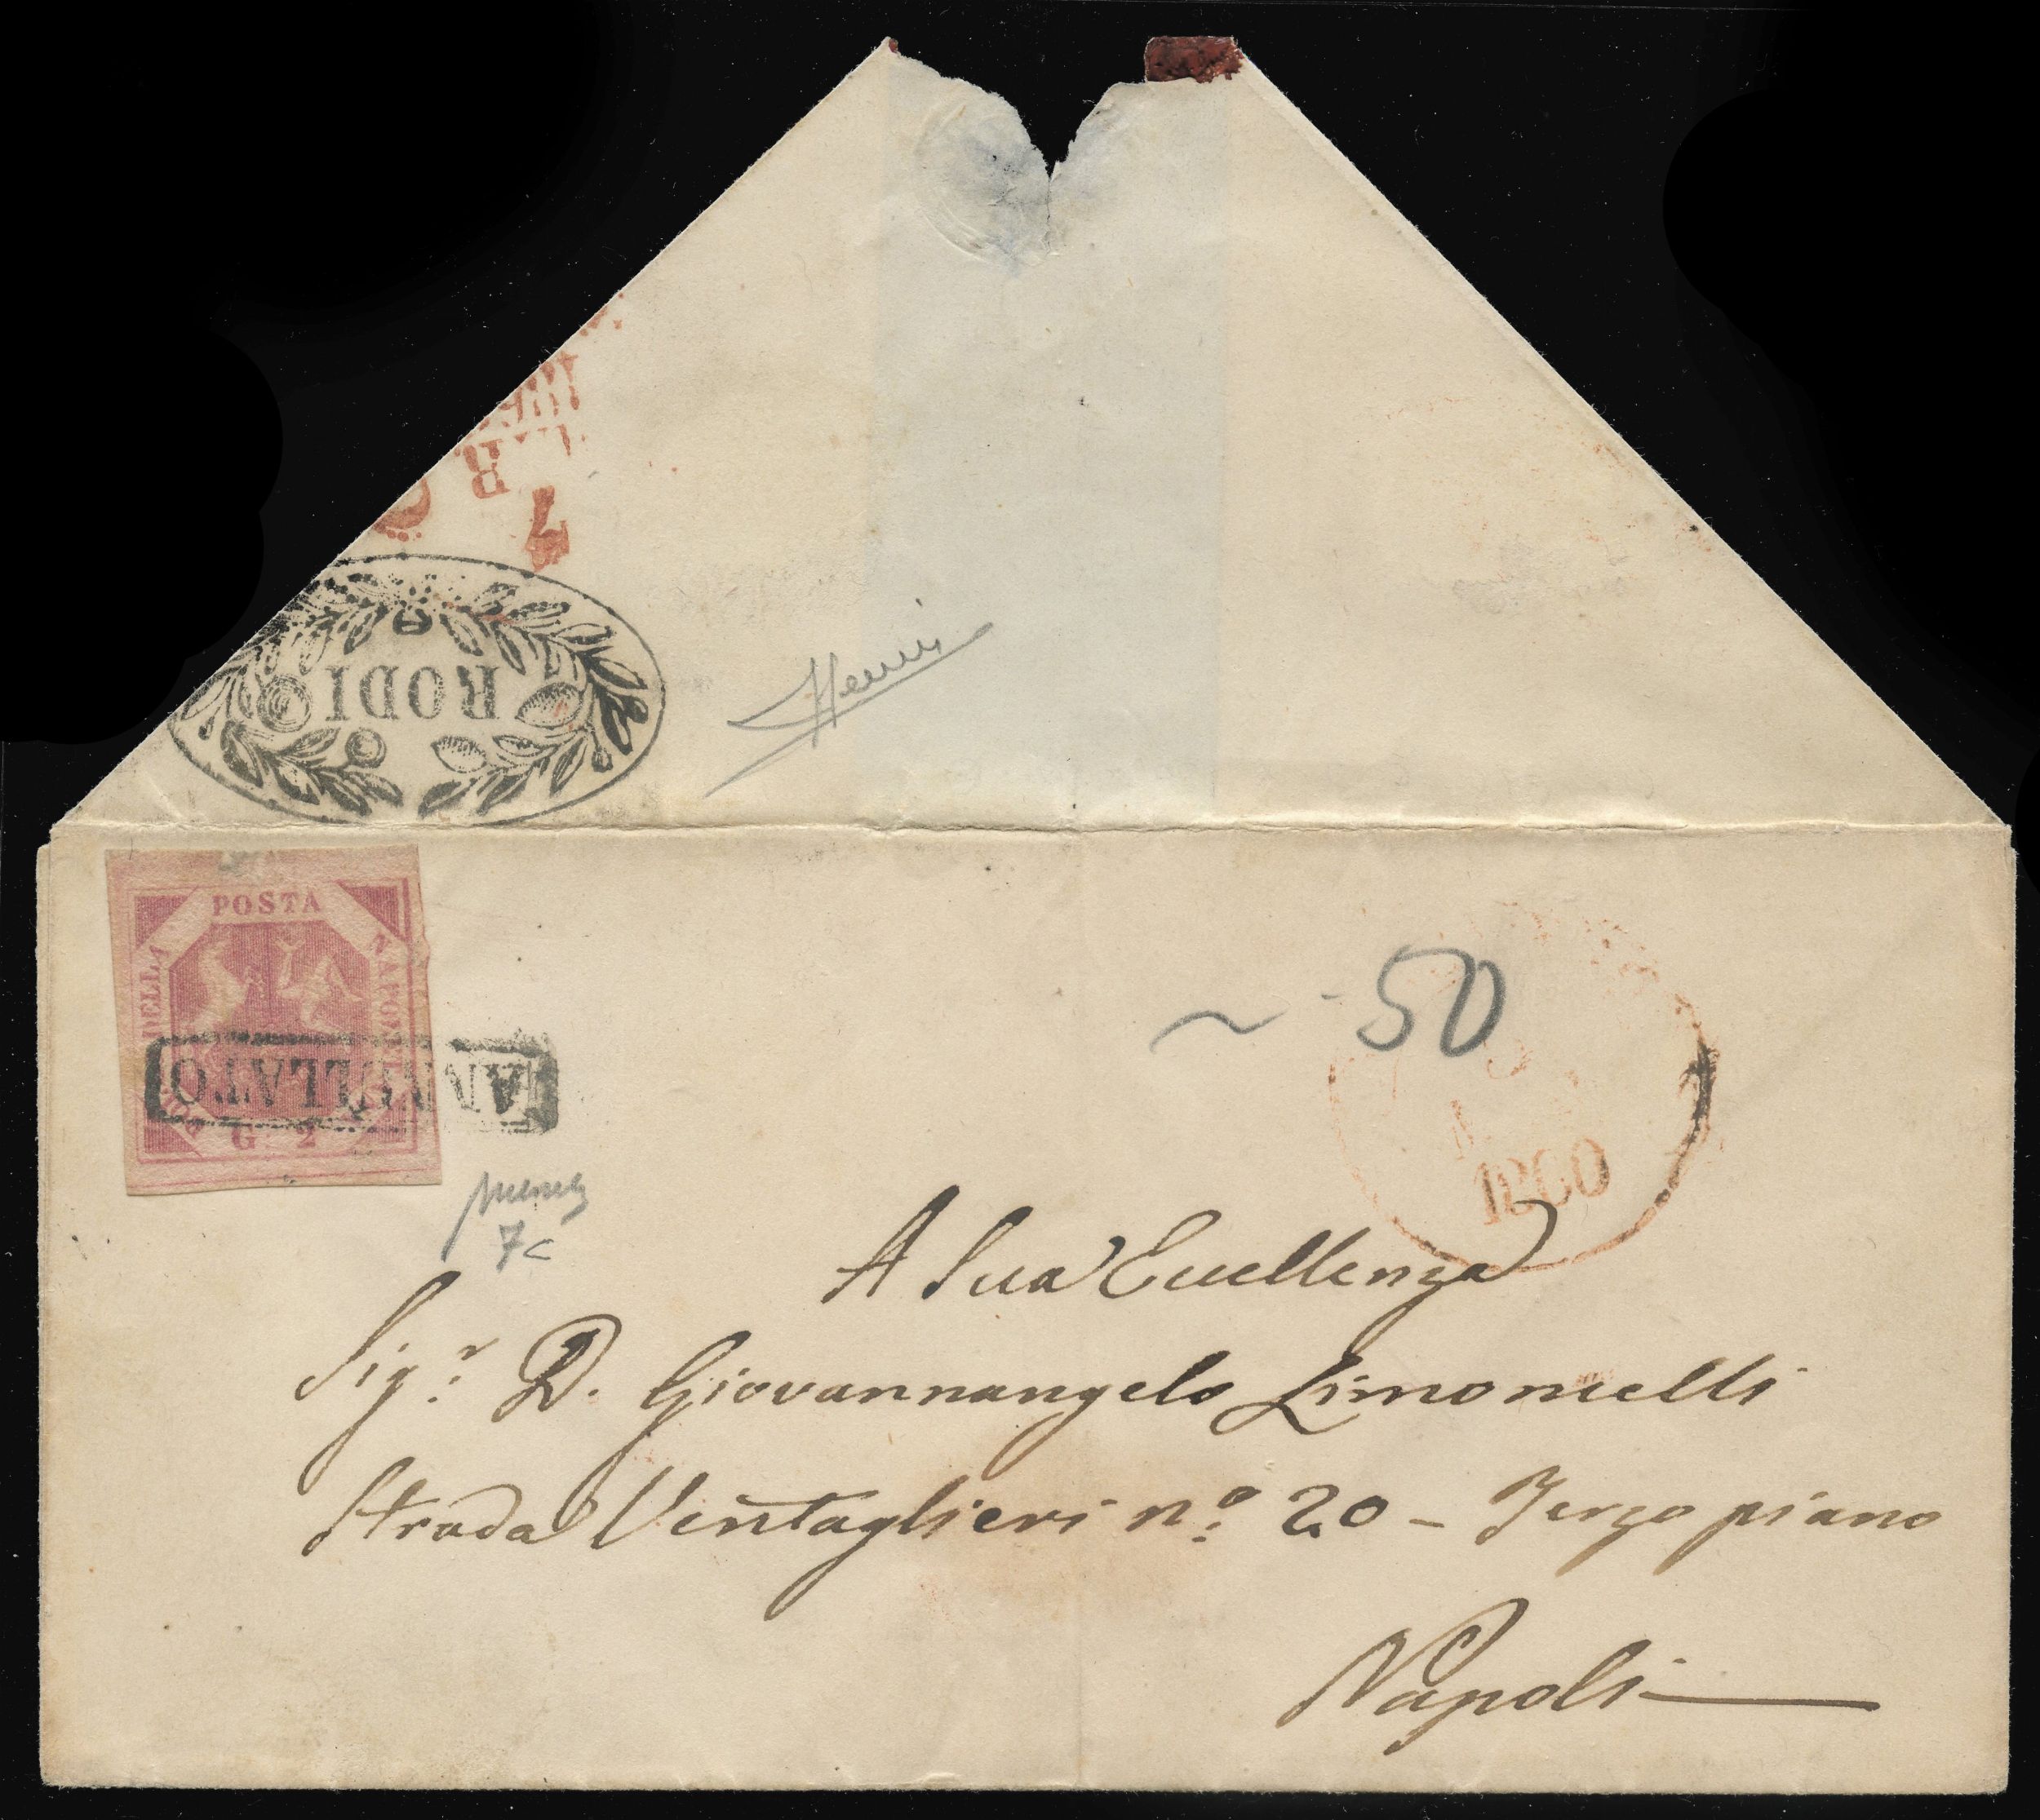 7
RODI
POSTA
DELLA
NAPOLETANA
G. 2
ANNULLATO
50
1860
7c
A Sua Eccellenza
Sig.r D. Giovannangelo Limoncelli
Strada Ventaglieri n.o 20 - Terzo piano
Napoli